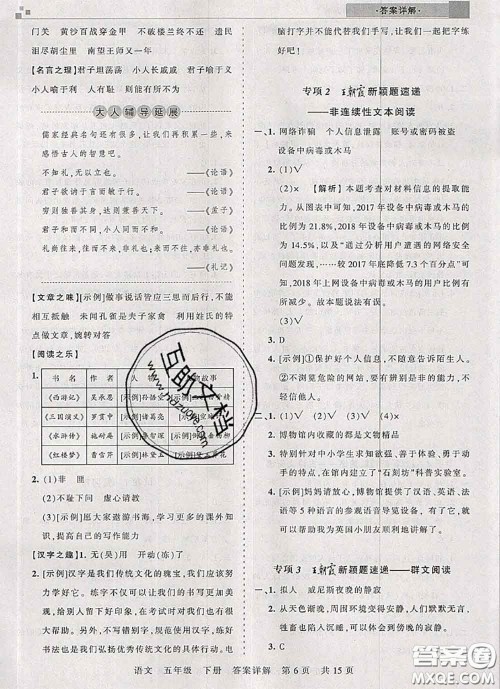 ·答案详解·
门关　黄沙百战穿金甲　不破楼兰终不还　遗民
泪尽胡尘里　南望王师又一年
【名言之理】君子坦荡荡　小人长戚戚　君子喻于义
小人喻于利　人有耻　则能有所不为
大人辅导延展
儒家经典名句还有很多，积累下来，来
感悟古人的智慧吧。
不知礼，无以立也。
——《论语》
君子敏于言而敏于行。
穷则独善其身，达则兼善天下。
——《孟子》
君子和而不同，小人同而不和。
——《论语》
礼尚往来，往而不来，非礼也。
——《礼记》
【文章之味】[示例]做事说话皆应三思而后行，不能
相互抵触　未闻孔雀是夫子家禽　利用姓氏的特
点做文章，婉转对答
【阅读之乐】
1.
书　名　作　者　人　物故事
《西游记》　吴承恩　[示例]
《三国演义》　罗贯中　[示例]诸葛亮　[示例]
《水浒传》　施耐庵　[示例]　[示例]
《红楼梦》　曹雪芹　[示例]林黛玉　[示例]
2. (1)非　圃
(2)不耻下问　虚心请教
(3)[示例]愿大家遨游书海，学习更多的课外知
识，提高自己的写作能力
【汉字之趣】1. 无(吴)用　开动(冻)了
2. [示例]汉字是我们传统文化的瑰宝，是我们传统
文化的根。它不仅可以让我们的写作更加
美观，还能让我们深刻感受传统文化的魅力。电
脑打字并不能代替我们手写，让我们一起把字练
好吧！
专项 2　王朝霞新颖题速递
——非连续性文本阅读
一、1. 网络诈骗　个人信息泄露　账号或密码被盗
设备中病毒或木马
2. (1)√
(2)×　【解析】本题考查对材料信息的提取能
力。从对比图可以看出，2017年设备中病毒或木马的
比例为21.8%，2018年设备中病毒或木马的比例
为14.5%，以及“通过分析用户遭遇的网络安全
问题发现，……较2017年底降低7.3个百分点”可
知，2018年上网设备中病毒或木马的用户比例有
所减少。故本题说法有误。
(3)√
3. D
4. [示例]①保护好个人信息，不随意告诉陌生人。
②不浏览危险的网站，要有辨别是非的能力，不
轻信他人。
二、1. (1)√　(2)√　(3)√　(4)×
2. 博物馆内收藏的都是文物精品
3. 特别针对中小学生求知欲强、善于动手、富于行
动的特点，在馆内建立了“石刻坊”科普实验室。
4. [示例]妈妈请放心，博物馆提供了汉语、英语、法
语等5种语言的参观语音导览设备，有了它，就可
以帮助我为英国小朋友顺利地讲解了。
专项 3　王朝霞新颖题速递——群文阅读
一、1. 拟人　威尼斯夜晚的静寂
2. 从天色渐晚，周围变得安静，人们默默无言，
牲畜也不再吼叫，可以体会到傍晚的寂静。
3. C
互助文档
www.hdzuoye.com
语文　五年级　下册　答案详解　第6页　共15页
答案圈
MXQE.COM